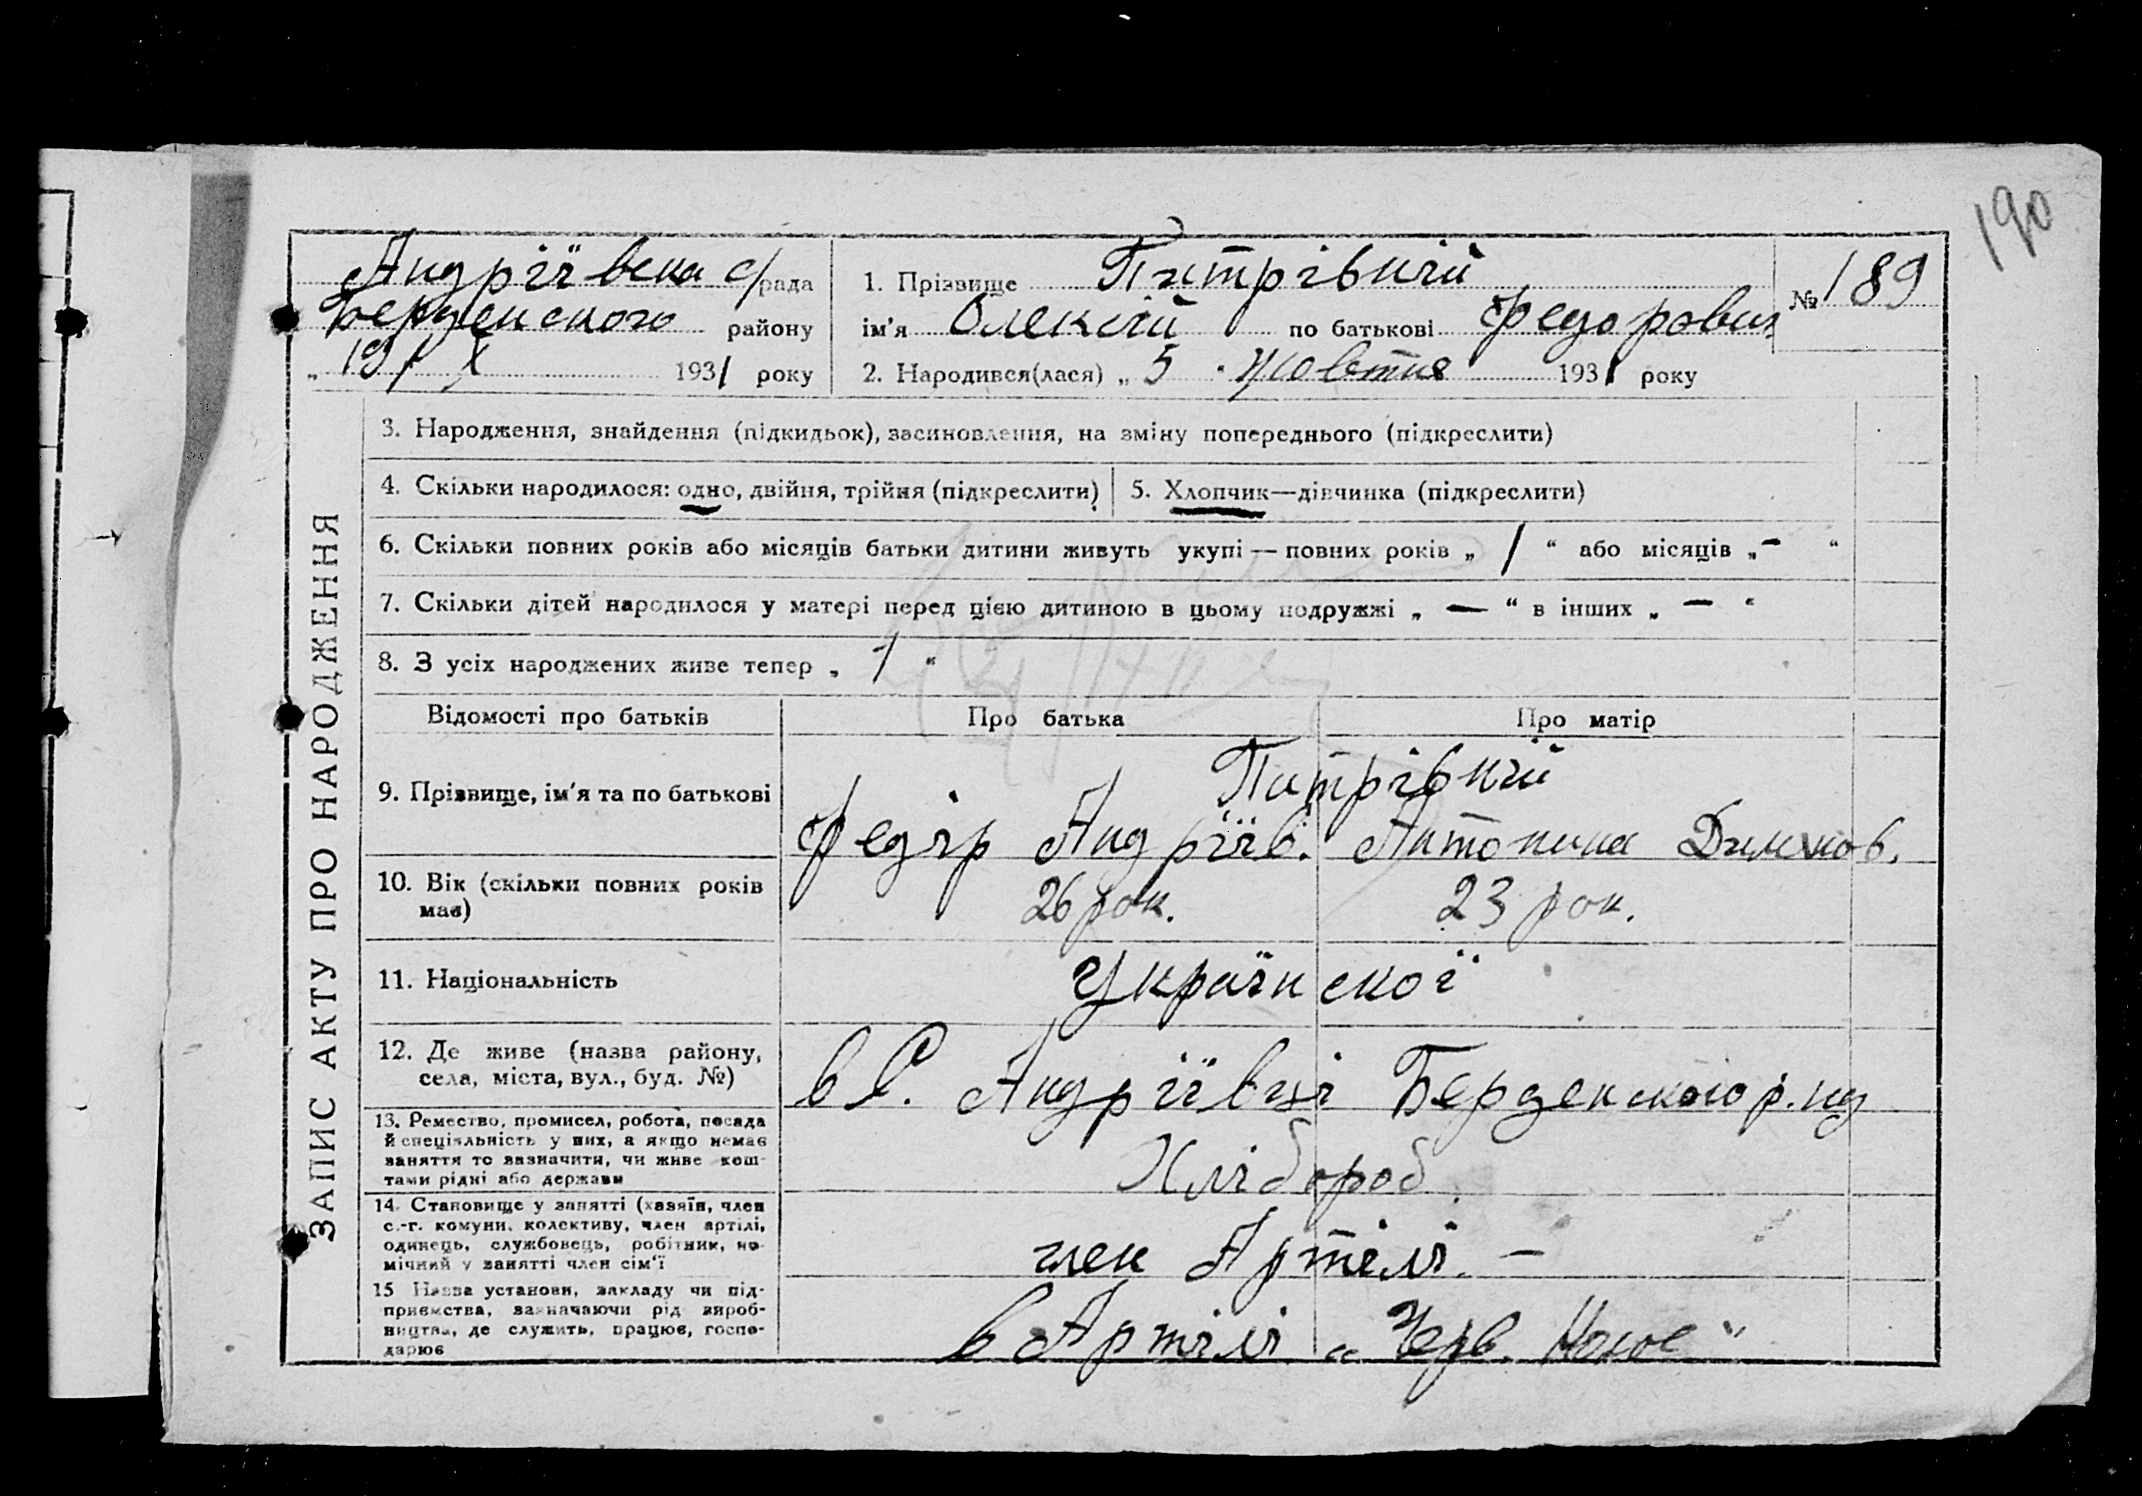 190
Андріївска с/рада
Берденского району
„ 19/X 1931 року
1. Прізвище Питрівний
ім'я Олексій по батькові Федорович
2. Народився(лася) „ 5 " Жовтня 1931 року
№ 189
ЗАПИС АКТУ ПРО НАРОДЖЕННЯ
3. Народження, знайдення (підкидьок), засиновлення, на зміну попереднього (підкреслити)
4. Скільки народилося: одно, двійня, трійня (підкреслити)
5. Хлопчик—дівчинка (підкреслити)
6. Скільки повних років або місяців батьки дитини живуть укупі — повних років „ 1 “ або місяців „ - “
7. Скільки дітей народилося у матері перед цією дитиною в цьому подружжі „ — “ в інших „ — “
8. З усіх народжених живе тепер „ 1 “
Відомості про батьків Про батька Про матір
9. Прізвище, ім'я та по батькові
Питрівний
Федір Андріїв. Антонина
10. Вік (скільки повних років
має)
26 рок. 23 рок.
11. Національність
Українскої
12. Де живе (назва району,
села, міста, вул., буд. №)
в С. Андріївці Берденского р.ну
13. Ремество, промисел, робота, посада
й спеціяльність у них, а якщо немає
заняття то зазначити, чи живе кош-
тами рідні або держави
Хлібороб
14. Становище у занятті (хазяїн, член
с.-г. комуни, колективу, член артілі,
одинець, службовець, робітник, по-
мічний у занятті член сім'ї
член Артілі —
15 Назва установи, закладу чи під-
приємства, зазначаючи рід вироб-
ництва, де служить, працює, госпо-
дарює
в Артілі „Черв.